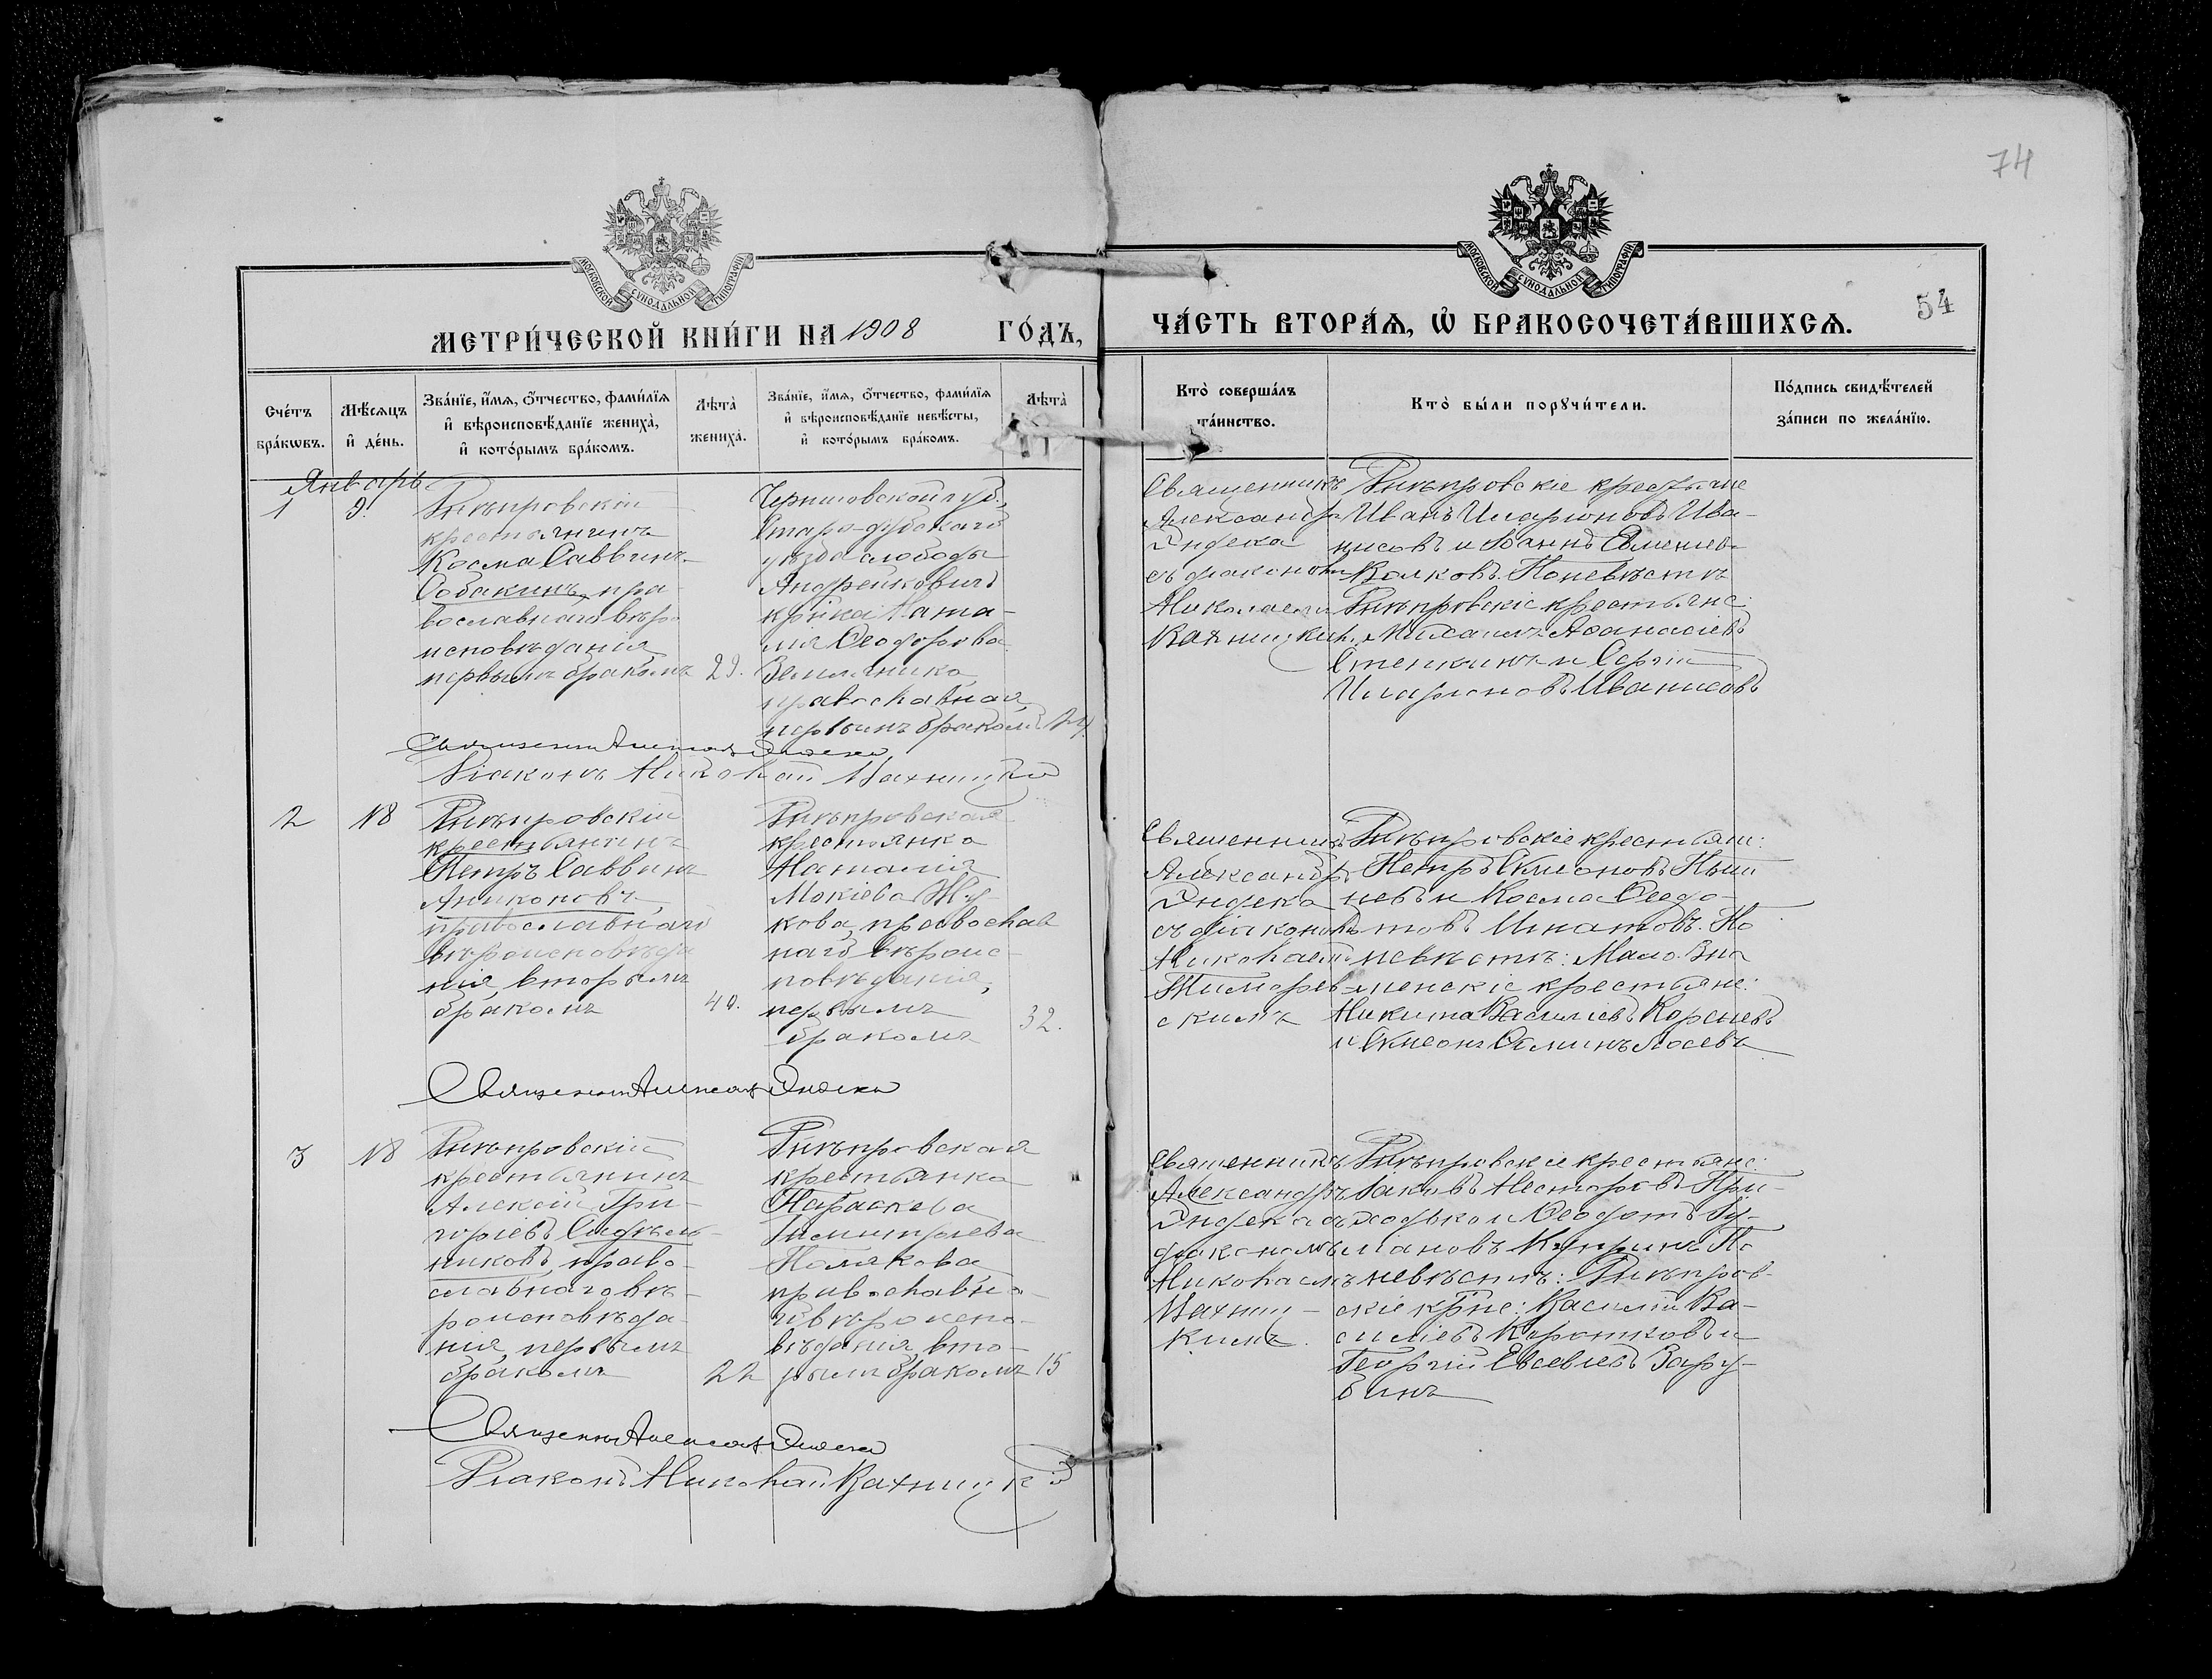 74
МОСКОВСКОЙ СУНОДАЛЬНОЙ ТИПОГРАФІИ
МОСКОВСКОЙ СУНОДАЛЬНОЙ ТИПОГРАФІИ
МЕТРИ́ЧЕСКОЙ КНИ́ГИ НА 1908 ГО́ДЪ,
ЧА́СТЬ ВТОРА́Ѧ, Ѡ҆ БРАКОСОЧЕТА́ВШИХСѦ.
54
Сче́тъ
бра́кѡвъ.
Мѣ́сѧцъ
и҆ де́нь.
Зва́нїе, и҆́мѧ, ѻ҆́тчество, фами́лїѧ
и҆ вѣроисповѣ́данїе жениха̀,
и҆ кото́рымъ бра́комъ.
Лѣта̀
жениха̀.
Зва́нїе, и҆́мѧ, ѻ҆́тчество, фами́лїѧ
и҆ вѣроисповѣ́данїе невѣ́сты,
и҆ кото́рымъ бра́комъ.
Лѣта̀
Кто̀ соверша́лъ
та́инство.
Кто̀ бы́ли порꙋчи́тели.
По́дпись свидѣ́телей
за́писи по жела́нїю.
Январь
1
9.
Днѣпровскій
крестьянинъ
Косма Саввинъ
Собакинъ, пра
вославнаго вѣро
исповѣданія,
первымъ бракомъ
29.
Черниговской губ.,
Старо-дубскаго
уѣзда слободы
Андрейковичъ
кр-нка Ната-
лія Ѳеодорова
Землянико
православная,
первымъ бракомъ
24.
Священникъ
Александръ
Индека
съ діакономъ
Николаемъ
Вахницкимъ
Днѣпровскіе крестьяне
Иванъ Иларіоновъ Ива-
нисовъ и Іоаннъ
Волковъ. По невѣстѣ
Днѣпровскіе крестьяне:
Михаилъ Аѳанасіевъ
Степкинъ и Сергій
Иларіоновъ Иванисовъ
Священникъ Александръ Индека
Діаконъ Николай Вахницкій
2
18
Днѣпровскій
крестьянинъ
Петръ Саввинъ
Аниконовъ,
православнаго
вѣроисповѣда
нія, вторымъ
бракомъ
40.
Днѣпровская
крестьянка
Наталія
Мокіева Жу-
кова, православ
наго вѣроис-
повѣданія,
первымъ
бракомъ
32.
Священникъ
Александръ
Индека
съ діакономъ
Николаемъ
Днѣпровскіе крестьяне:
Петръ
и Косма Ѳеодо-
товъ Игнатовъ. По
невѣстѣ: Мало-Зна
менскіе крестьяне:
Никита Василіевъ Корсневъ
и Симеонъ Лосевъ
Священникъ Александръ Индека
3
18
Днѣпровскій
крестьянинъ
Алексій Гри-
горіевъ Сидѣль-
никовъ, право-
славнаго вѣ-
роисповѣда-
нія, первымъ
бракомъ
22
Днѣпровская
крестьянка
Параскева
Димитріева
Полякова
православна-
го вѣроиспо-
вѣданія, вто-
рымъ бракомъ
15
Священникъ
Александръ
Индека съ
діакономъ
Николаемъ
Вахниц-
кимъ.
Днѣпровскіе крестьяне:
Іаковъ Несторовъ При-
ходько и Ѳеодотъ Іу-
ліановъ Купринъ. По
невѣстѣ: Днѣпров-
скіе кр-не: Василій Ва-
силіевъ Коротковъ и
Георгій Евсевіевъ Зару-
бинъ
Священникъ Александръ Индека
Діаконъ Николай Вахницкій